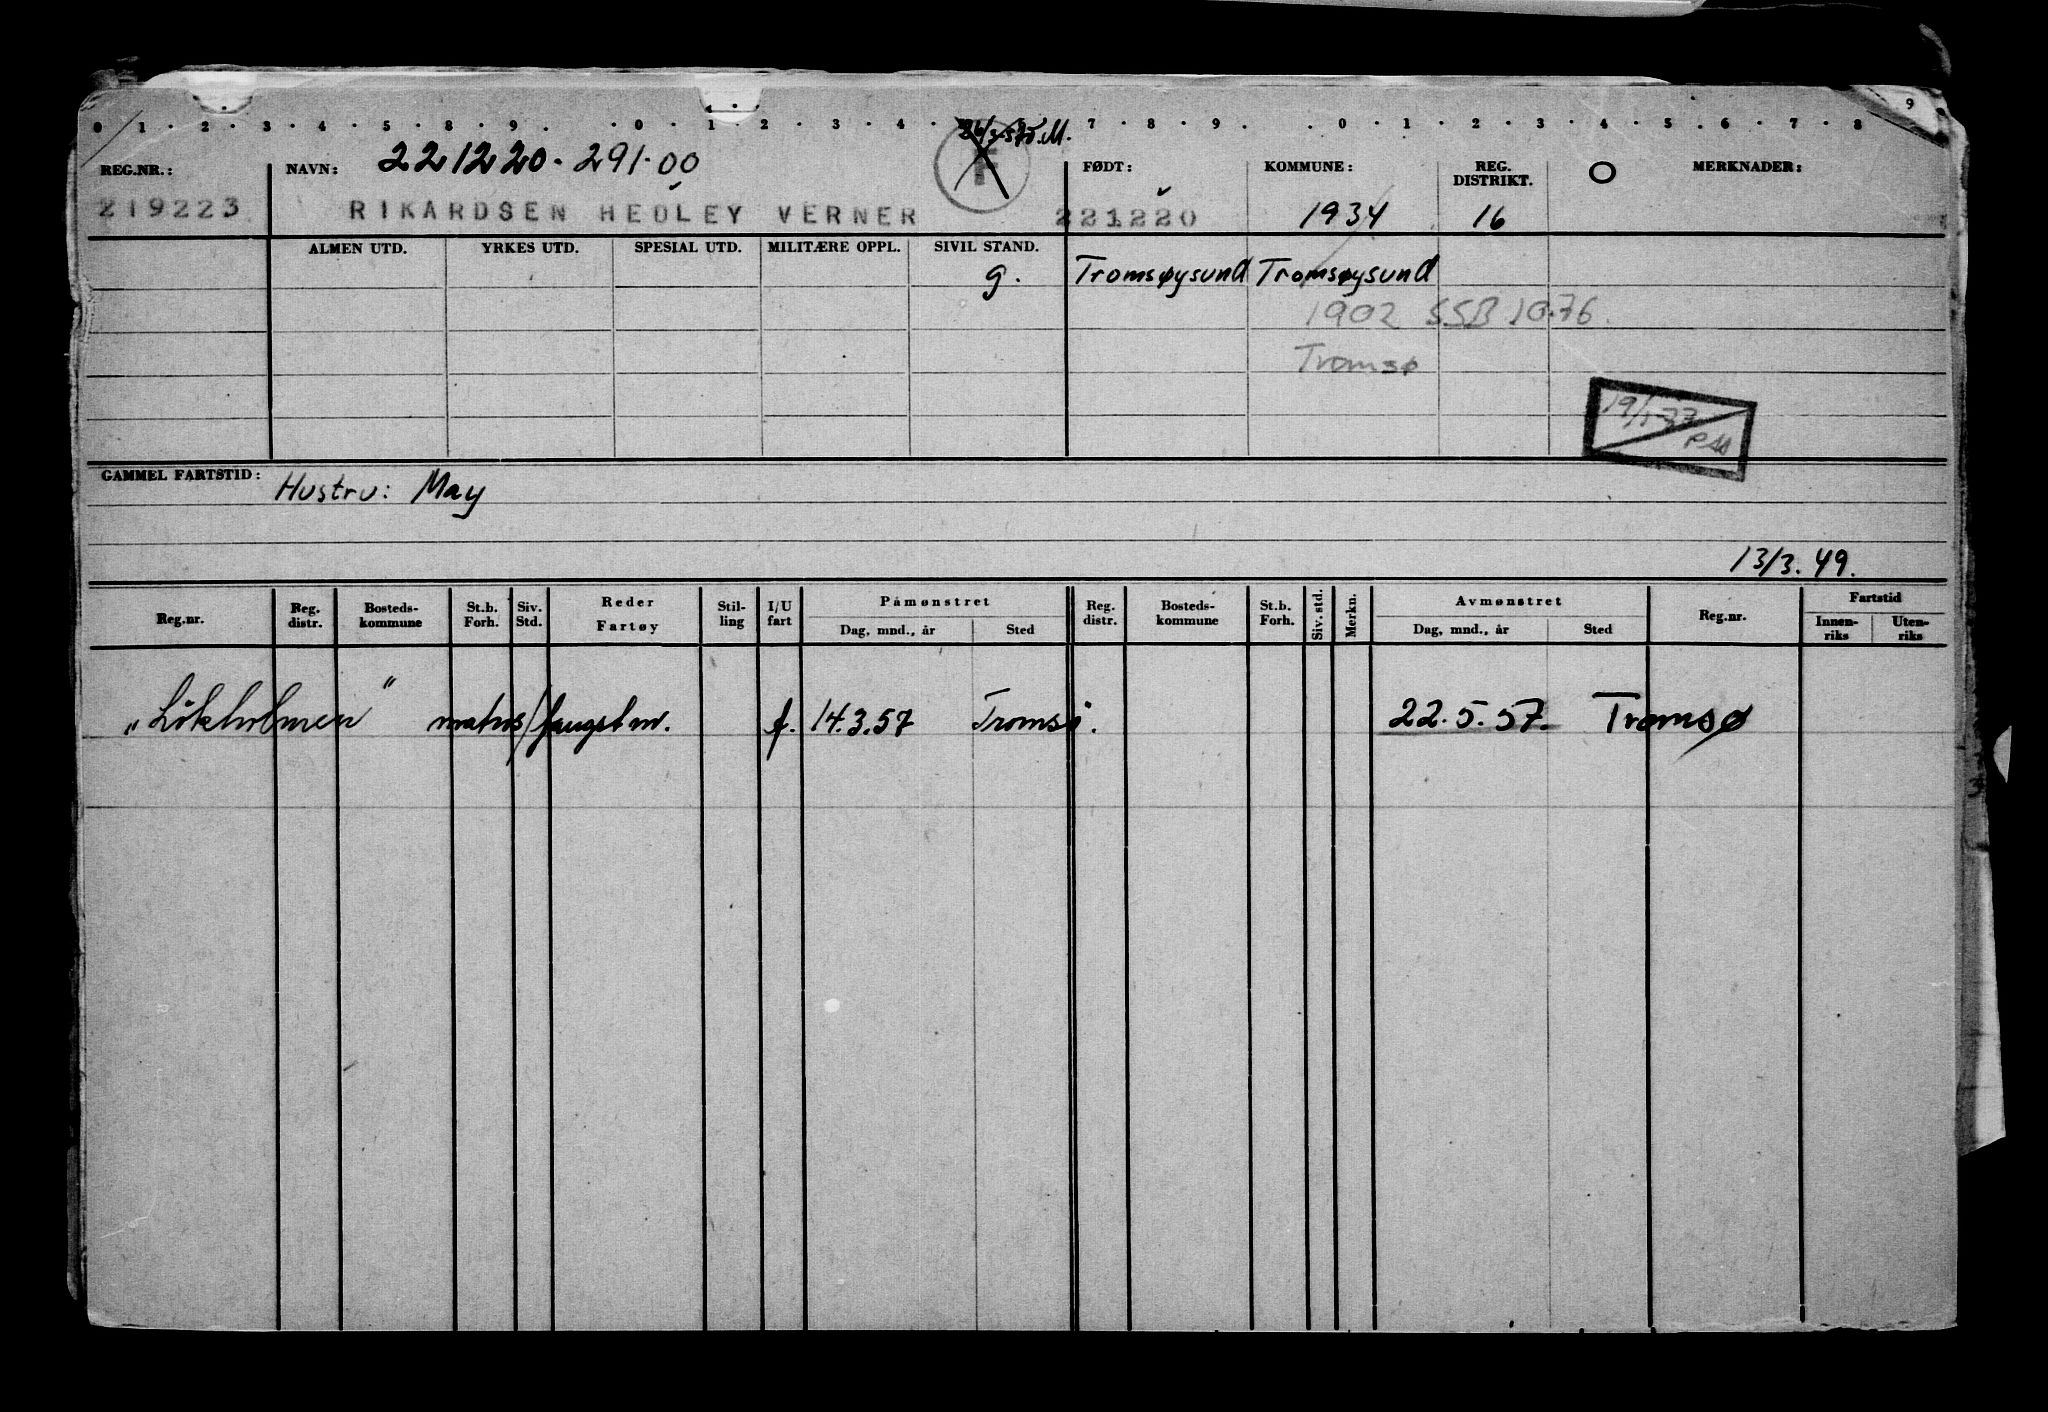 0 1 . 2 . 3 . 4 . 5 . 8 . 9 . . 0 . 1 . 2 . 3 . 4 . 7 . 8 . 9 . . 0 . 1 . 2 . 3 . 4 . 5 . 6 . 7 . 8 9
221220. 291.00
REG.NR.: NAVN: FØDT: KOMMUNE: REG. DISTRIKT. MERKNADER:
219223 RIKARDSEN HEDLEY VERNER F 221220 1934 16
ALMEN UTD. YRKES UTD. SPESIAL UTD. MILITÆRE OPPL. SIVIL STAND.
g. Tromsøysund Tromsøysund
1902 SSB 10.76.
Tromsø
19/1-77
GAMMEL FARTSTID: Hustru: May
13/3. 49.
Reg.nr. Reg. distr. Bosteds- kommune St.b. Forh. Siv. Std. Reder Fartøy Stil- ling I/U fart Påmønstret Dag, mnd., år Sted Reg. distr. Bosteds- kommune St.b. Forh. Siv. std. Merkn. Avmønstret Dag, mnd., år Sted Reg.nr. Fartstid Innen- riks Uten- riks
"Løkholmen" matros/fangstm. f. 14.3.57 Tromsø. 22.5.57. Tromsø